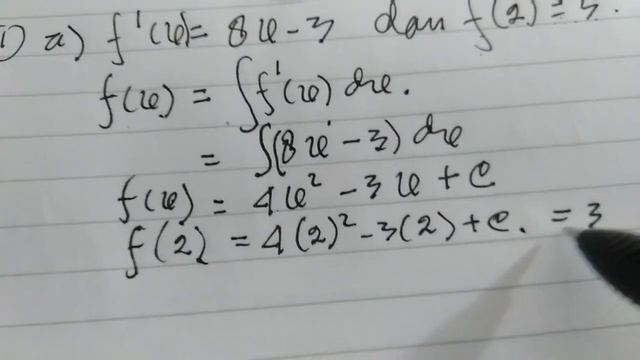 1) a) f'(x) = 8x - 3 dan f(2) = 3.
f(x) = ∫f'(x) dx.
= ∫(8x - 3) dx
f(x) = 4x² - 3x + c
f(2) = 4(2)² - 3(2) + c. = 3